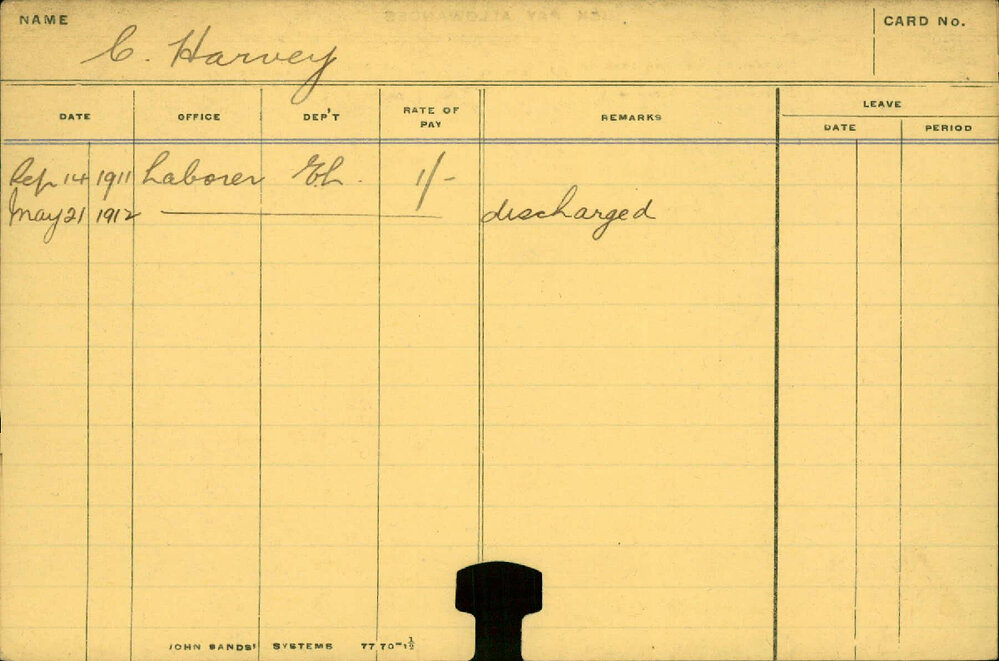 NAME
CARD No.
C. Harvey
DATE OFFICE DEP'T RATE OF PAY REMARKS LEAVE
DATE PERIOD
Sep 14 1911 Laborer E.L. 1/-
May 21 1912 discharged
JOHN SANDS' SYSTEMS 77 70